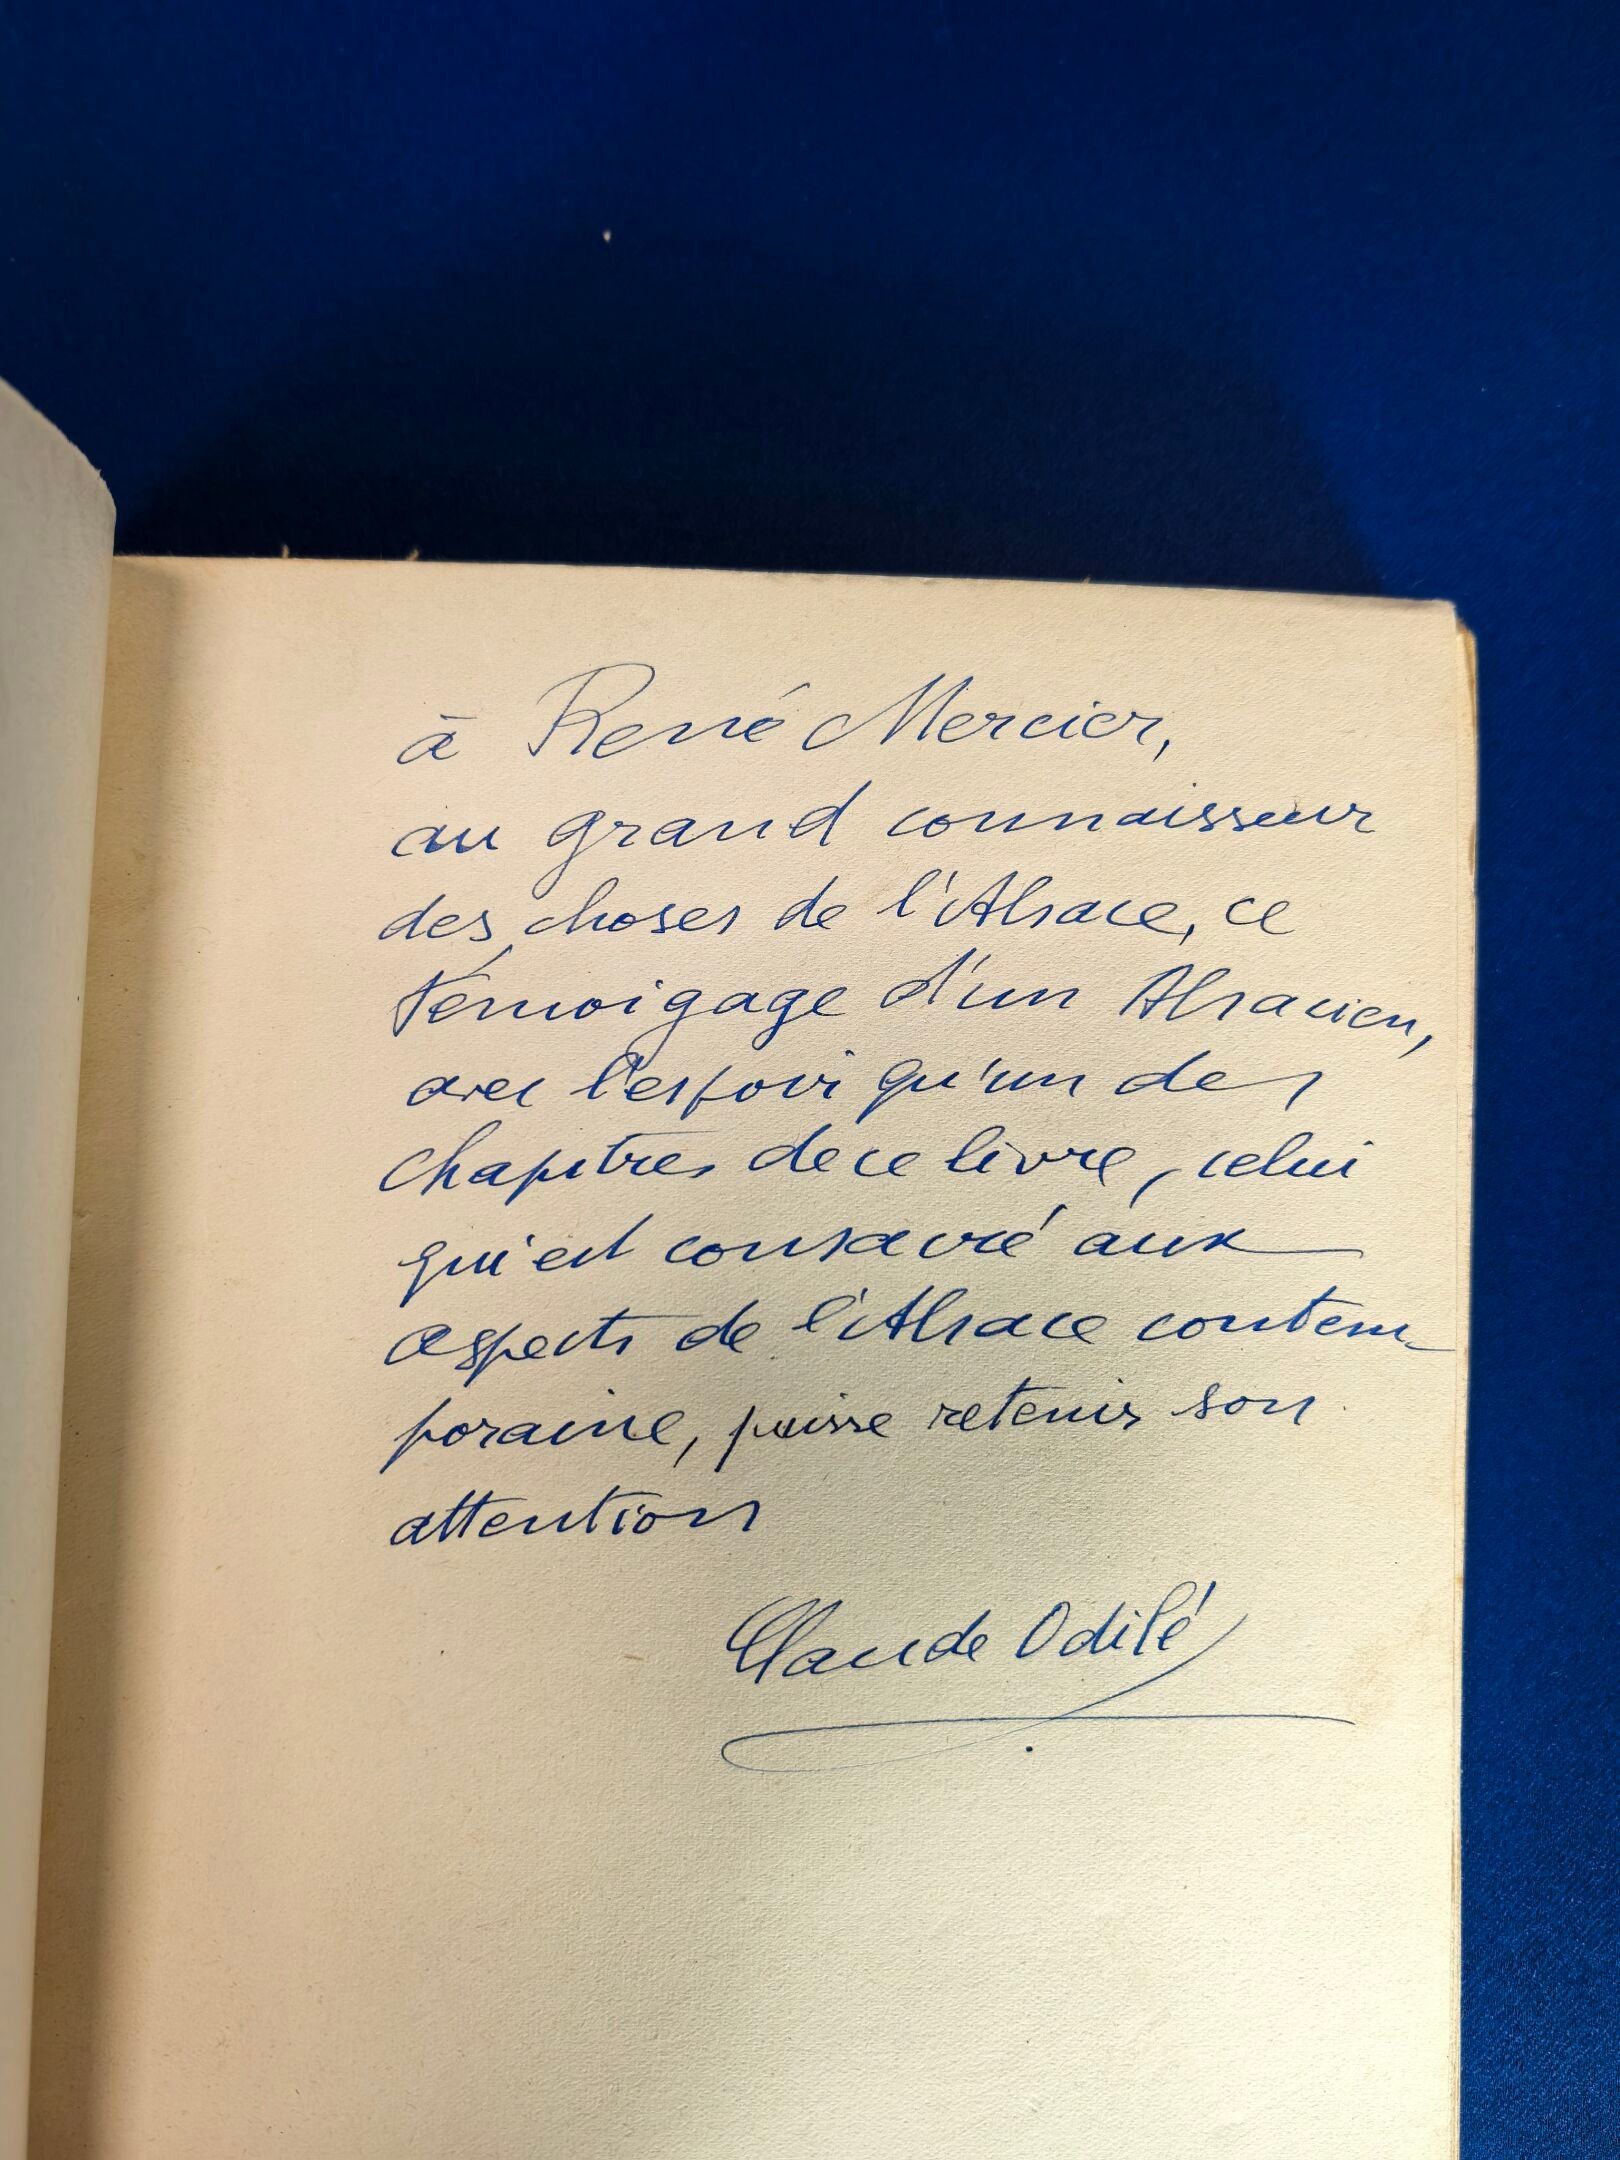 à René Mercier,
au grand connaisseur
des choses de l'Alsace, ce
témoigage d'un Alsacien,
avec l'espoir qu'un des
chapitres de ce livre, celui
qui est consacré aux
aspects de l'Alsace contem-
poraine, puisse retenir son
attention
Claude Odilé